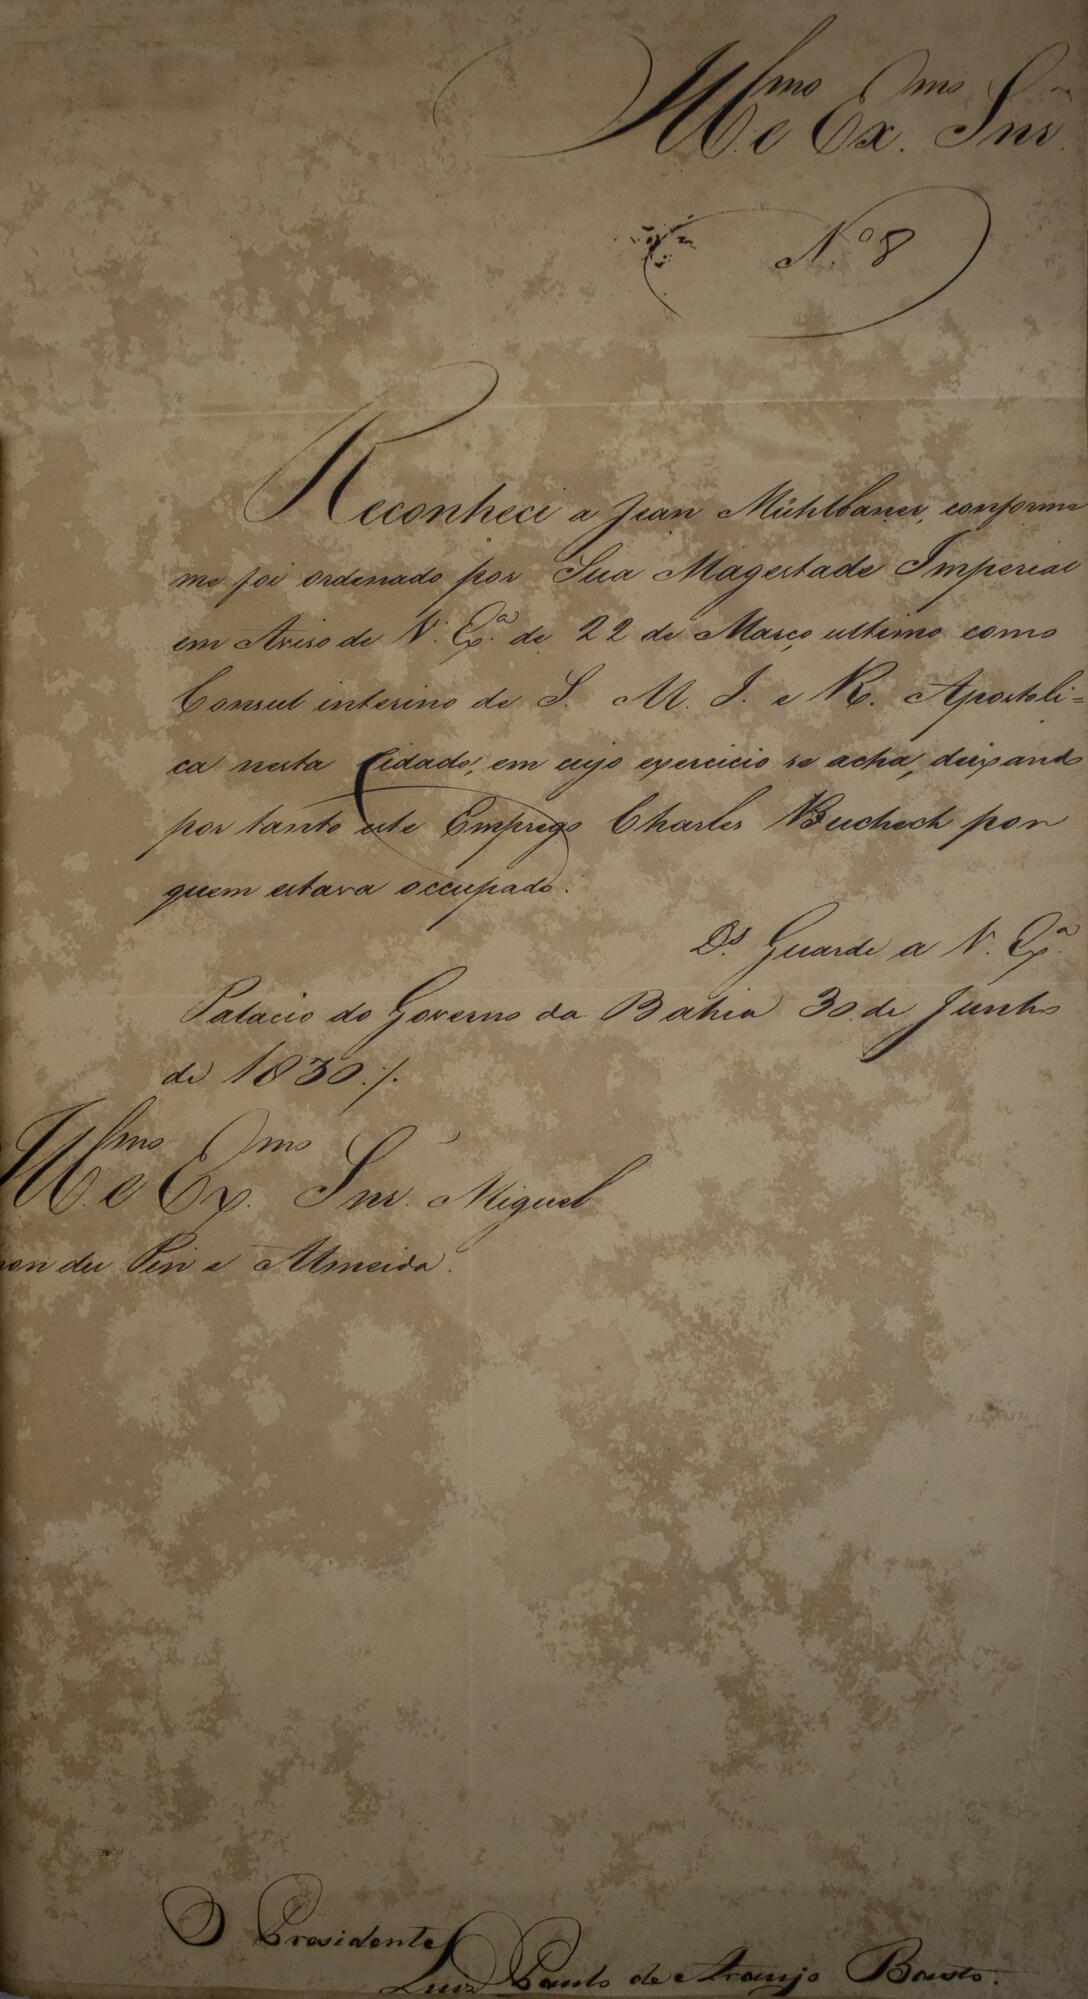 Ill.mo e Ex.mo Snr.
N.º 8
Reconheci a Jean Mühlbauer, conforme
me foi ordenado por Sua Magestade Imperial
em Aviso de V. Ex.ª de 22 de Março ultimo como
Consul interino de S. M. I. e R. Apostoli=
ca nesta Cidade, em cujo exercicio se acha, deixando
por tanto este Emprego Charles Bucheck por
quem estava occupado.
D.s Guarde a V. Ex.ª
Palacio do Governo da Bahia 30 de Junho
de 1830./.
Ill.mo e Ex.mo Snr. Miguel
mon du Pin e Almeida.
O Presidente
Luiz Paulo de Araujo Basto.